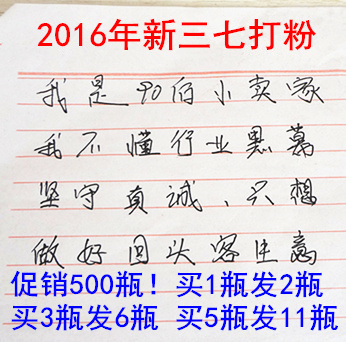 2016年新三七打粉
我是90后小卖家
我不懂行业黑幕
坚守真诚、只想
做好回头客生意
促销500瓶！买1瓶发2瓶
买3瓶发6瓶 买5瓶发11瓶